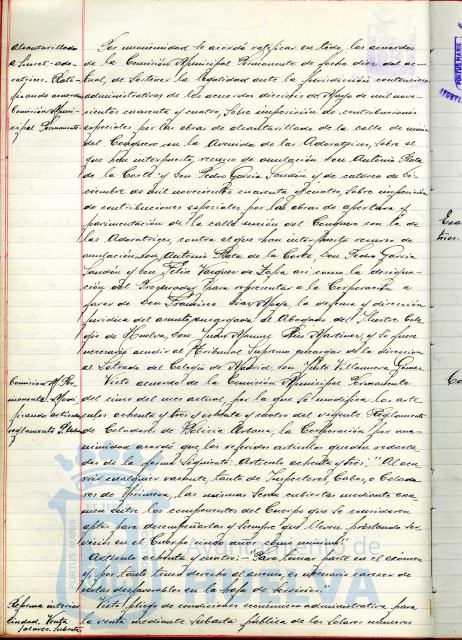 Alcantarillado
Por unanimidad se acordó ratificar en todo, los acuerdos
de la Comisión Municipal Permanente de fecha diez del ac-
tual, de sostener la legalidad ante la jurisdicción contencioso
administrativa de los acuerdos dieciseis de Mayo de mil nove-
cientos cuarenta y cuatro, sobre imposición de contribuciones
especiales por las obras de alcantarillado de la calle de unión
del Conquero con la Avenida de las Adoratrices, sobre el
que han interpuesto recurso de anulación Don Antonio
de la Corte y Don Pedro García Jandón y de catorce de Di-
ciembre de mil novecientos cuarenta y cuatro, sobre imposición
de contribuciones especiales por las obras de apertura y
pavimentación de la calle unión del Conquero con la de
las Adoratrices, contra el que han interpuesto recurso de
anulación, Don Antonio de la Corte, Don Pedro García
Jandón y Don Felix Vazquez de Zafra así como la designa-
ción del Procurador para representar a la Corporación a
favor de Don Francisco Díaz, la defensa y dirección
jurídica del asunto, encargada al Abogado del Ilustre Cole-
gio de Huelva, Don Manuel Martinez, y si fuese
necesario acudir al Tribunal Supremo de la dirección
al Letrado del Colegio de Madrid, Don Villanueva
Comisión M. Per-
manente. Modi-
ficando artículos
reglamento
Visto acuerdo de la Comisión Municipal Permanente
del cinco del mes actual, por la que se modifica los artí-
culos ochenta y tres y ochenta y cuatro del vigente Reglamento
de Celadores de Policía Urbana, la Corporación por una-
nimidad acordó que los referidos artículos quedan redacta-
dos de la forma siguiente: Artículo ochenta y tres: "Al ocu-
rrir cualquier vacante, tanto de Inspectores, Cabos, o Celado-
res de primera, las mismas serán cubiertas mediante exa-
men entre los componentes del Cuerpo que se consideren
aptos para desempeñarlas y siempre que lleven prestando ser-
vicios en el Cuerpo cinco años como mínimo".
Artículo ochenta y cuatro: "Para tomar parte en el examen
y por tanto tener derecho de ascenso, es necesario carecer de
notas desfavorables en la hoja de servicios."
Reforma interior
Ciudad. Venta
solares. Subasta
Visto pliego de condiciones económico administrativas para
la venta mediante subasta pública de los solares números
Ayuntamiento de
HUELVA
PORTUS MARIS